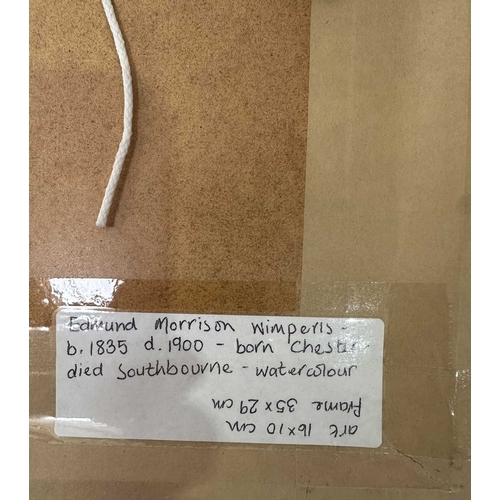 Edmund Morrison Wimperis -
b. 1835 d. 1900 - born Chester
died Southbourne - watercolour
art 16 x 10 cm
frame 35 x 29 cm